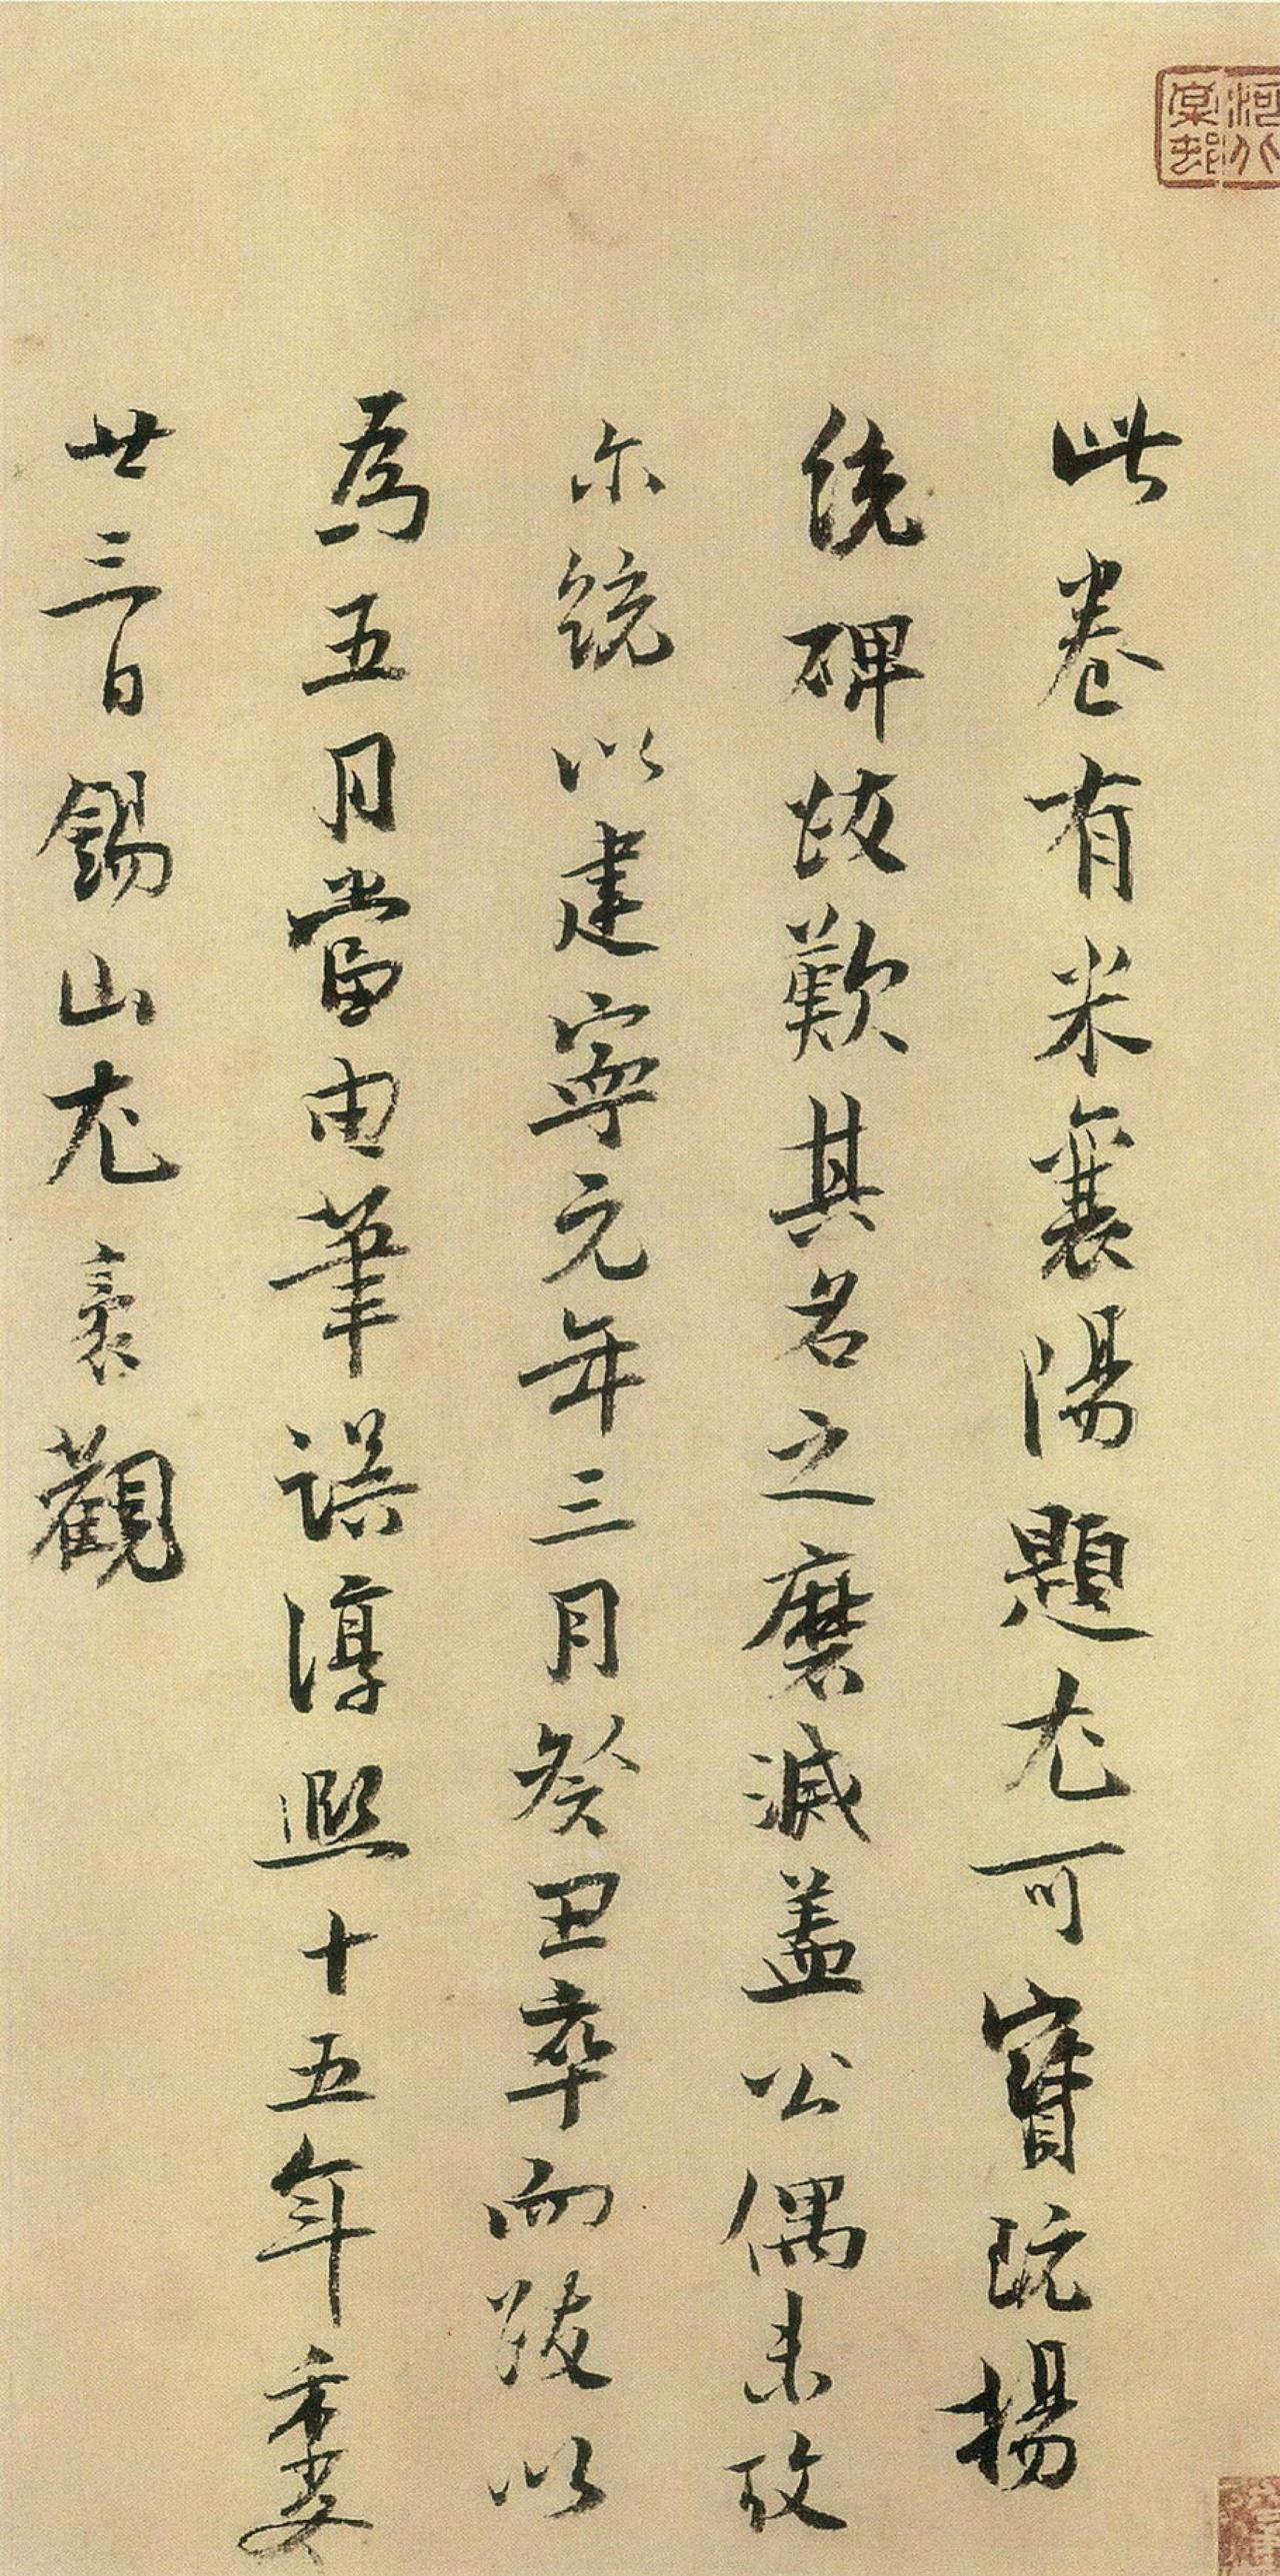 河北
棠邨
此卷有米襄陽題尤可寶玩楊
統碑跋歎其名之磨滅蓋公偶未攷
尓統以建寧元年三月癸丑卒而跋以
為五月當由筆誤淳熙十五年季夏
廿三日錫山尤袤觀